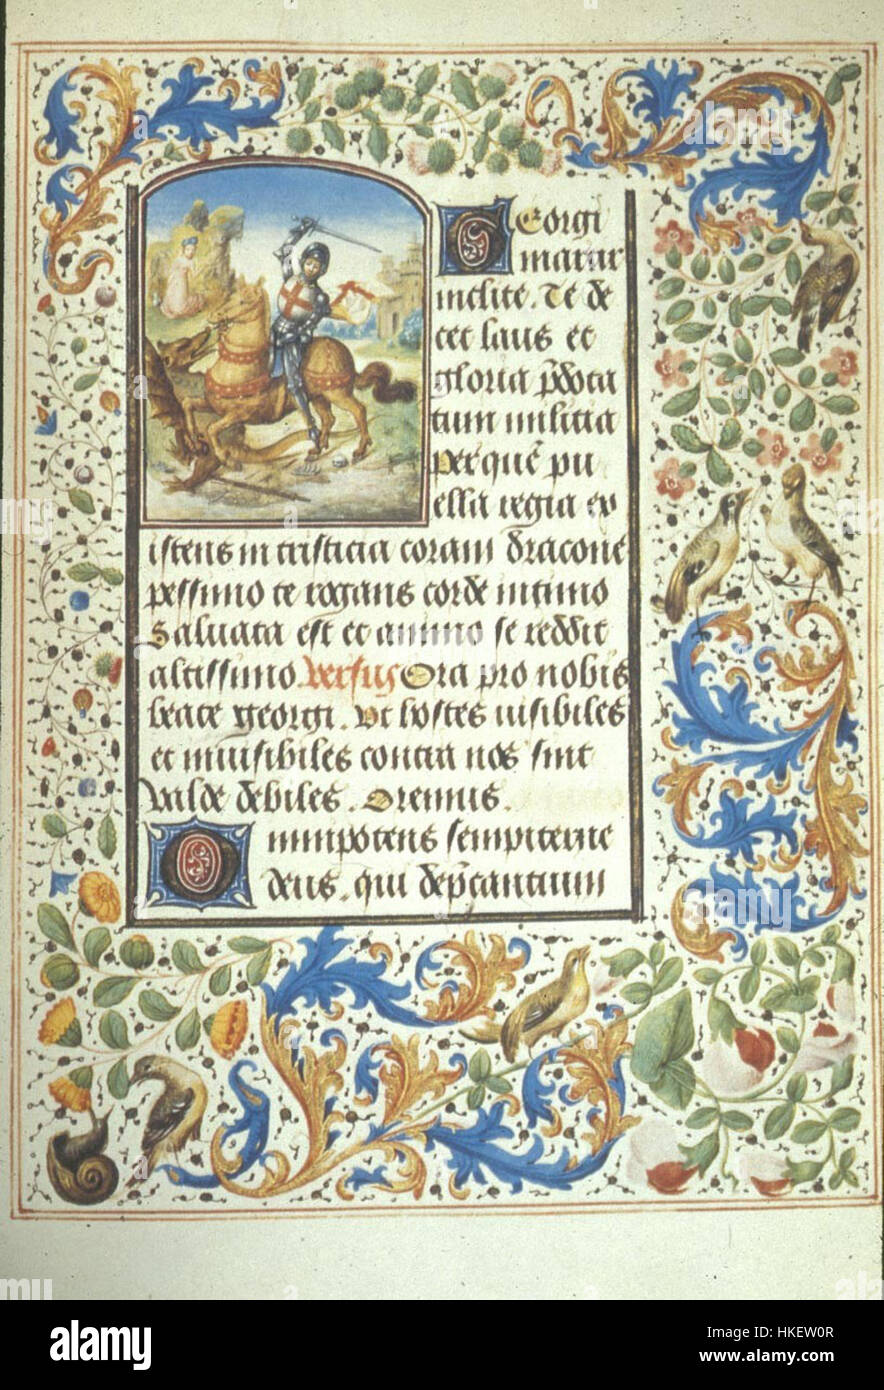 Georgi
martir
inclite. Te de
cet laus et
gloria p̄dota
tum militia
Per quē pu
ella regia ex
istens in tristicia coram dracone
pessimo te rogans corde intimo
Saluata est et animo se reddit
altissimo. Versus Ora pro nobis
beate georgi. Vt hostes uisibiles
et inuisibiles contra nos sint
valde debiles. Oremus.
Omnipotens sempiterne
deus. qui dep̄cantium
alamy
alamy stock photo
HKEW0R
www.alamy.com